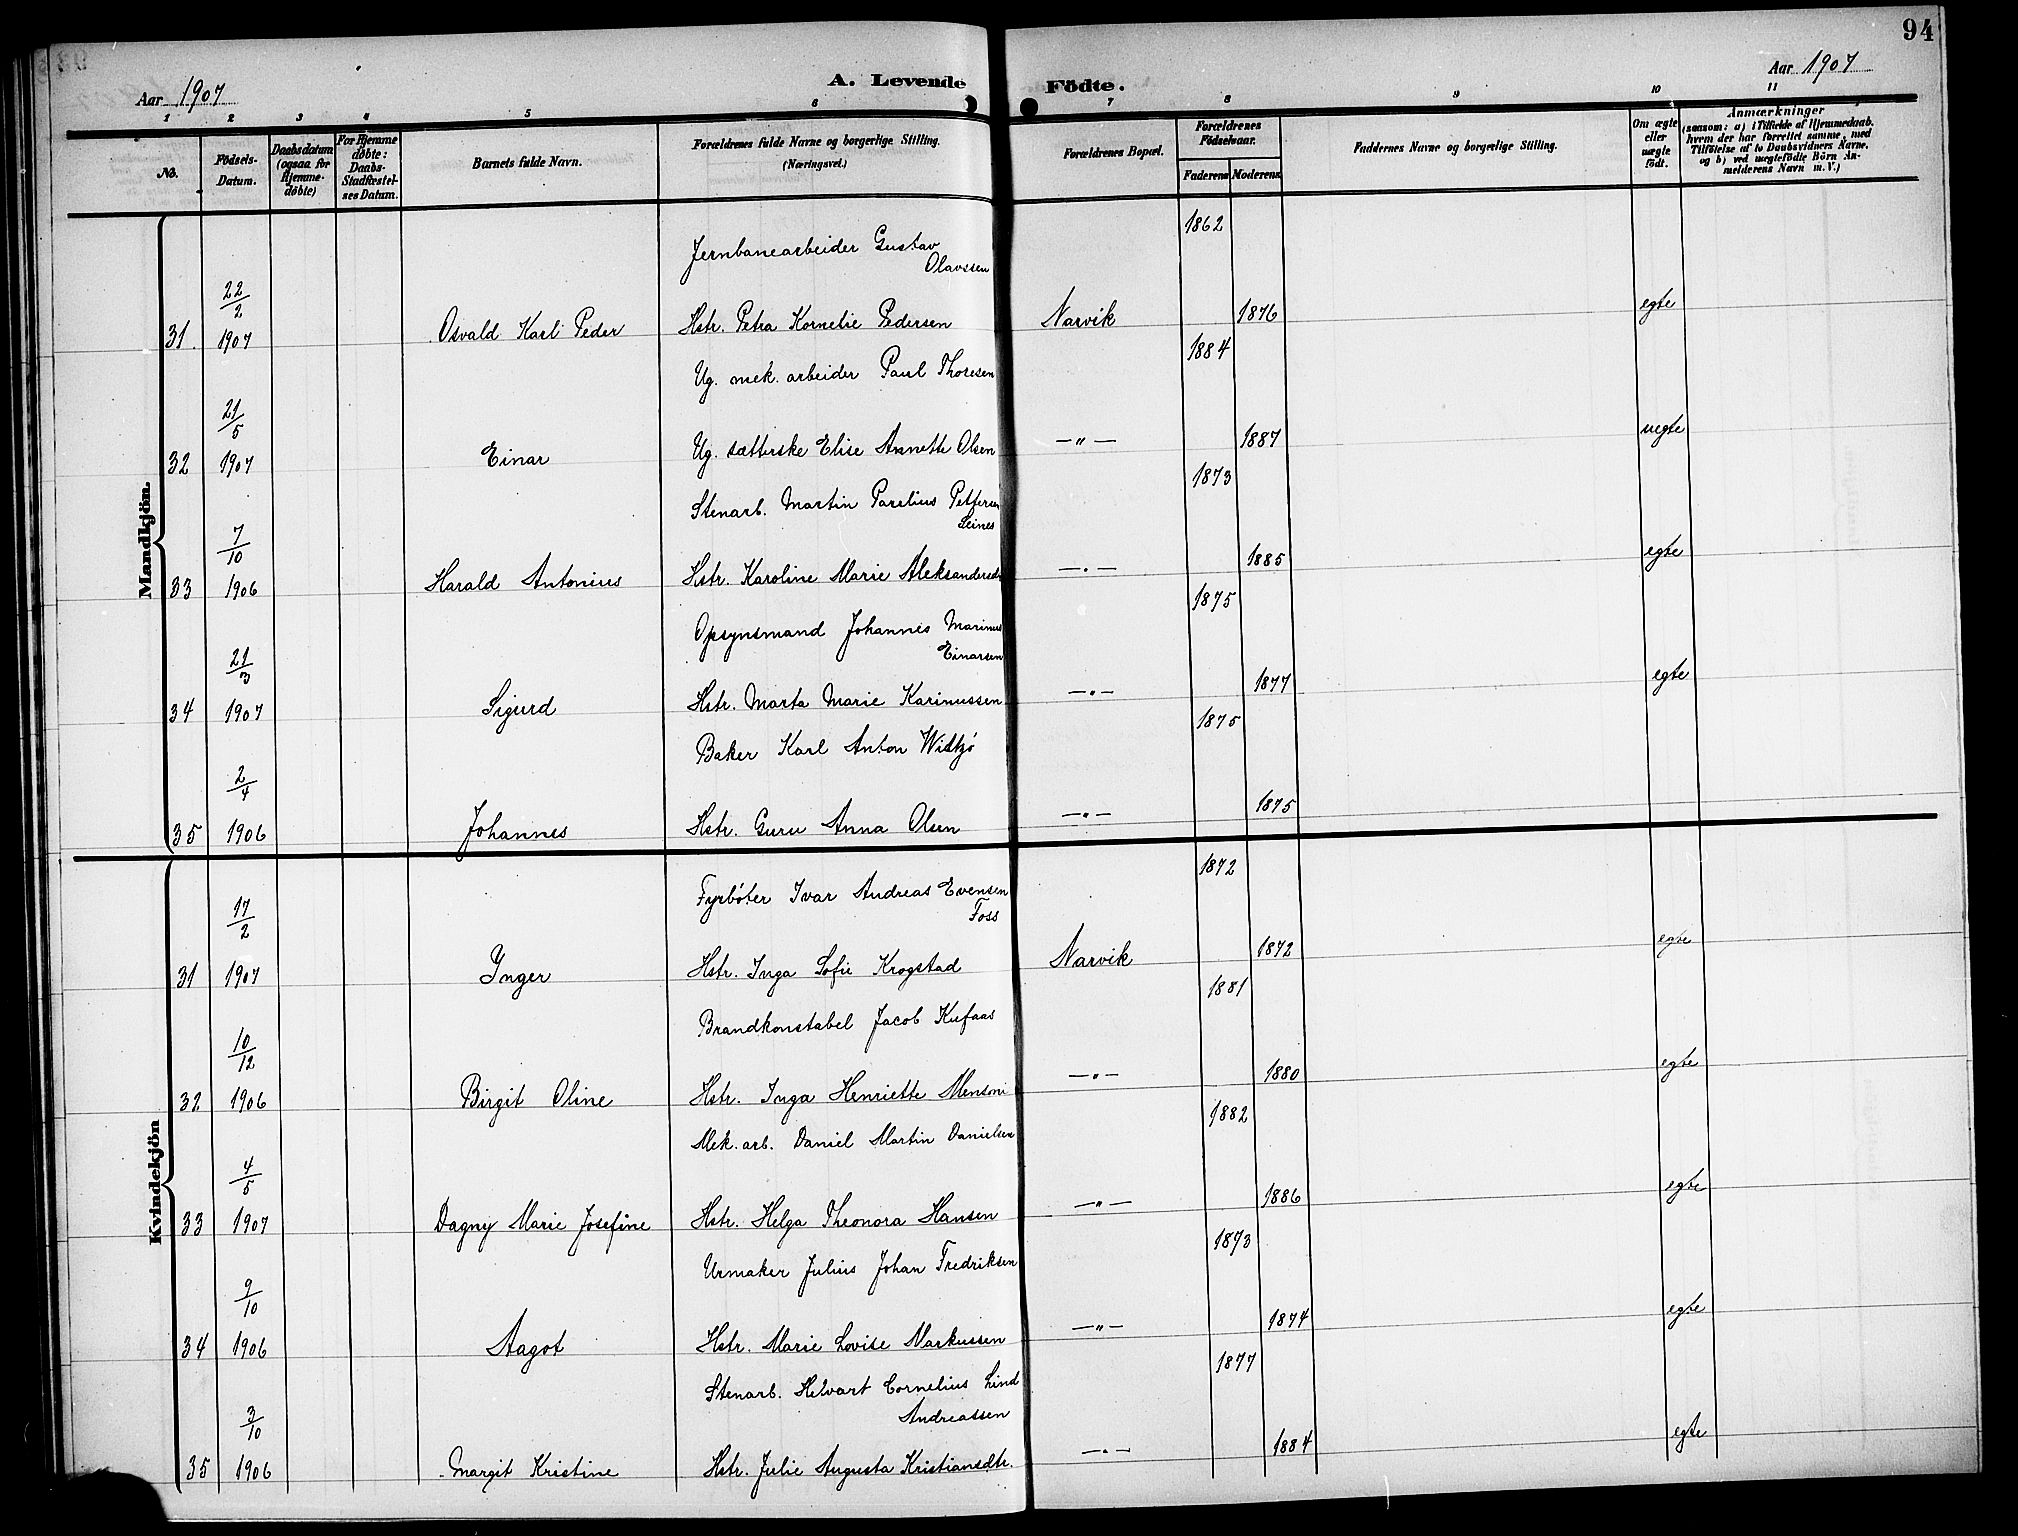 94
Aar 1907
A. Levende Födte.
Aar 1907
1 2 3 4 5 6 7 8 9 10 11
No.
Födsels-Datum.
Daabsdatum (ogsaa for Hjemmedöbte)
For Hjemmedöbte: Daabs-Stadfæstelses Datum.
Barnets fulde Navn.
Forældrenes fulde Navne og borgerlige Stilling. (Næringsvei.)
Forældrenes Bopæl.
Forældrenes Födselsaar.
Faderens Moderens
Faddernes Navne og borgerlige Stilling.
Om ægte eller uægte födt.
Anmærkninger
(saasom: a) i Tilfælde af Hjemmedaab.
hvem der har forrettet samme, med
Tilföielse af to Daabsvidners Navne.
og b) ved uægtefödte Börn An-
melderens Navn m. V.)
Mandkjön.
1862
Jernbanearbeider Gustav
Olavssen
22/2
31. 1907 Osvald Karl Peder Hstr. Petra Kornelie Pedersen Narvik 1876 egte
1884
Ug. mek. arbeider Paul Thoresen
21/5
32 1907 Einar Ug. sætterske Elise Annette Olsen —„— 1887 uegte
1873
Stenarb. Martin Parelius Pettersen
Leines
7/10
33 1906 Harald Antonius Hstr. Karoline Marie Aleksandersdtr —„— 1885 egte
1875
Opsynsmand Johannes Marinus
Einarsen
21/3
34 1907 Sigurd Hstr. Marta Marie Karinussen —„— 1877 egte
1875
Baker Karl Anton
2/4
35 1906 Johannes Hstr. Guru Anna Olsen —„— 1875
Kvindekjön
1872
Fyrbøter Ivar Andreas Evensen
Foss
17/2
31 1907 Ynger Hstr. Inga Sofie Krogstad Narvik 1872 egte
1881
Brandkonstabel Jacob Kufaas
10/12
32 1906 Birgit Oline Hstr. Inga Henriette —„— 1880 egte
1882
Mek. arb. Daniel Martin Danielsen
4/5
33 1907 Dagny Marie Josefine Hstr. Helga Theonora Hansen —„— 1886 egte
1873
Urmaker Julius Johan Fredriksen
9/10
34 1906 Aagot Hstr. Marie Lovise Markussen —„— 1874 egte
1877
Stenarb. Helvart Cornelius Lind
Andreassen
3/10
35 1906 Margit Kristine Hstr. Julie Augusta Kristiansdtr. —„— 1884 egte